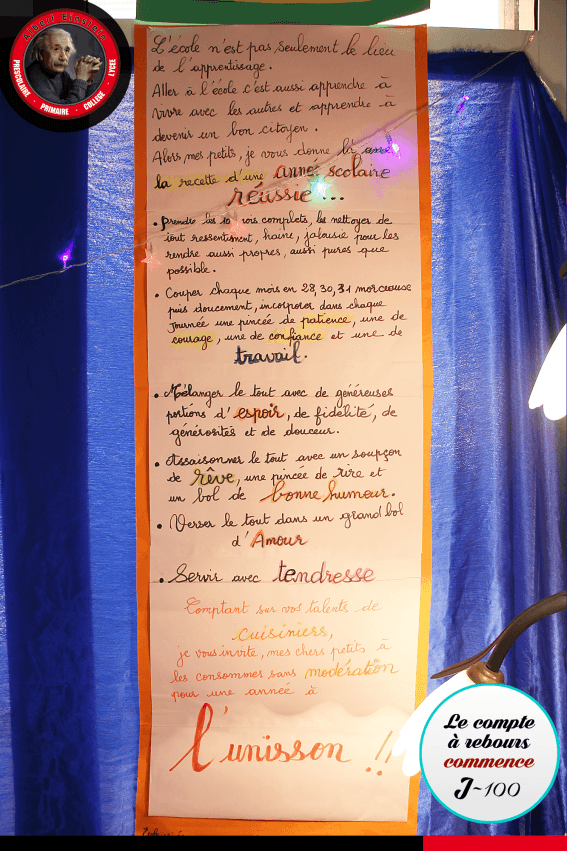 Albert Einstein
PRESCOLAIRE · PRIMAIRE · COLLÈGE · LYCÉE
L'école n'est pas seulement le lieu
de l'apprentissage.
Aller à l'école c'est aussi apprendre à
vivre avec les autres et apprendre à
devenir un bon citoyen.
Alors mes petits, je vous donne
la recette d'une année scolaire
réussie ...
• Prendre les 10 mois complets, les nettoyer de
tout ressentiment, haine, jalousie pour les
rendre aussi propres, aussi pures que
possible.
• Couper chaque mois en 28, 30, 31 morceaux
puis doucement, incorporer dans chaque
Journée une pincée de patience, une de
courage, une de confiance et une de
travail.
• Mélanger le tout avec de généreuses
portions d'espoir, de fidélité, de
générosités et de douceur.
• Assaisonner le tout avec un soupçon
de rêve, une pincée de rire et
un bol de bonne humeur.
• Verser le tout dans un grand bol
d'Amour
• Servir avec tendresse
Comptant sur vos talents de
cuisiniers,
je vous invite, mes chers petits à
les consommer sans modération
pour une année à
l'unisson !!
Le compte
à rebours
commence
J-100